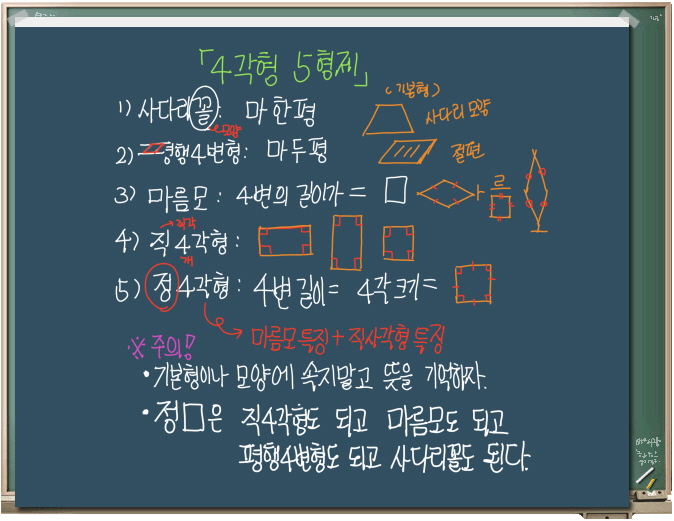 「4각형 5형제」
(기본형)
1) 사다리꼴: 마한평
모양
사다리 모양
2) 평행4변형: 마두평
절편
3) 마름모: 4변의 길이가 = □
르
→직각
4) 직4각형:
개
5) 정4각형: 4변 길이= 4각 크기=
마름모 특징 + 직사각형 특징
※ 주의!
• 기본형이나 모양에 속지말고 뜻을 기억하자.
• 정□은 직4각형도 되고 마름모도 되고
평행4변형도 되고 사다리꼴도 된다.